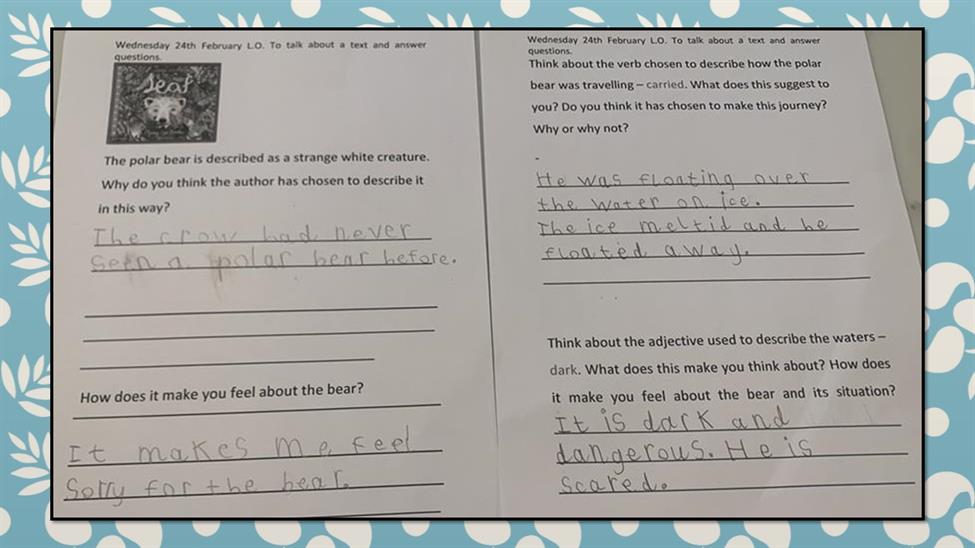 Wednesday 24th February L.O. To talk about a text and answer
questions.
Leaf
The polar bear is described as a strange white creature.
Why do you think the author has chosen to describe it
in this way?
The crow had never
seen a polar bear before.
How does it make you feel about the bear?
It makes me feel
Sorry for the bear.
Wednesday 24th February L.O. To talk about a text and answer
questions.
Think about the verb chosen to describe how the polar
bear was travelling – carried. What does this suggest to
you? Do you think it has chosen to make this journey?
Why or why not?
-
He was floating over
the water on ice.
The ice meltid and he
floated away.
Think about the adjective used to describe the waters –
dark. What does this make you think about? How does
it make you feel about the bear and its situation?
It is dark and
dangerous. He is
scared.